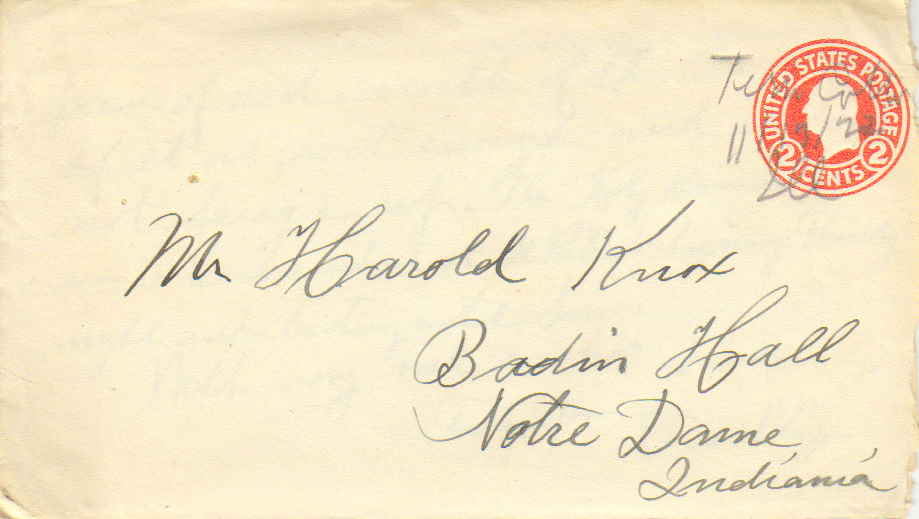 UNITED STATES POSTAGE
2 CENTS 2
Mr Harold Knox
Badin Hall
Notre Dame
Indiania